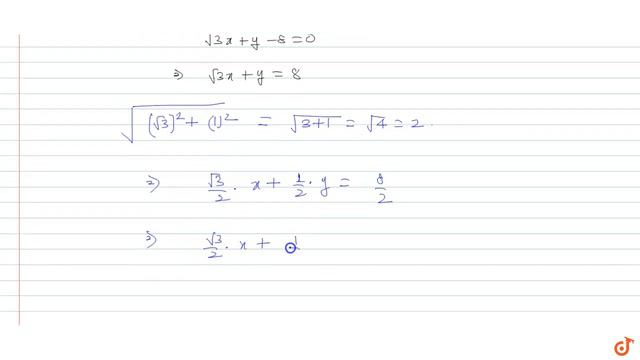 √3x + y - 8 = 0
⇒ √3x + y = 8
√((√3)² + (1)²) = √(3+1) = √4 = 2.
⇒ √3/2 · x + 1/2 · y = 8/2
⇒ √3/2 · x + 1